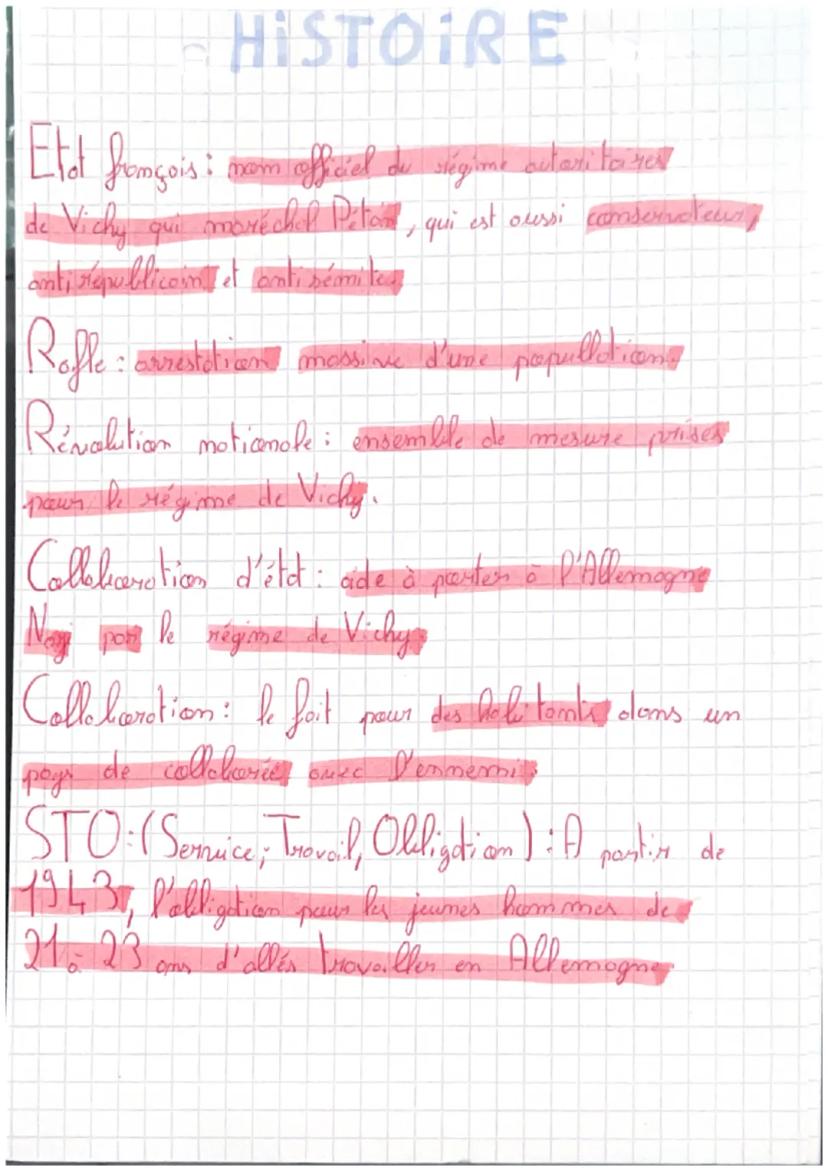 - HISTOIRE
Etat français : nom officiel du régime autoritaires
de Vichy qui maréchal Pétain, qui est aussi conservateur,
antirépublicain et antisémite
Rafle : arrestation massive d'une popullation.
Révolution nationale : ensemble de mesure prises
pour le régime de Vichy.
Collaboration d'état : aide à porter à l'Allemagne
Nazi par le régime de Vichy
Collaboration : le fait pour des habitants dans un
pays de collaborée avec l'ennemni
STO : (Service, Travail, Obligation) : A partir de
1943, l'obligation pour les jeunes hommes de
21 à 23 ans d'allés travailler en Allemagne